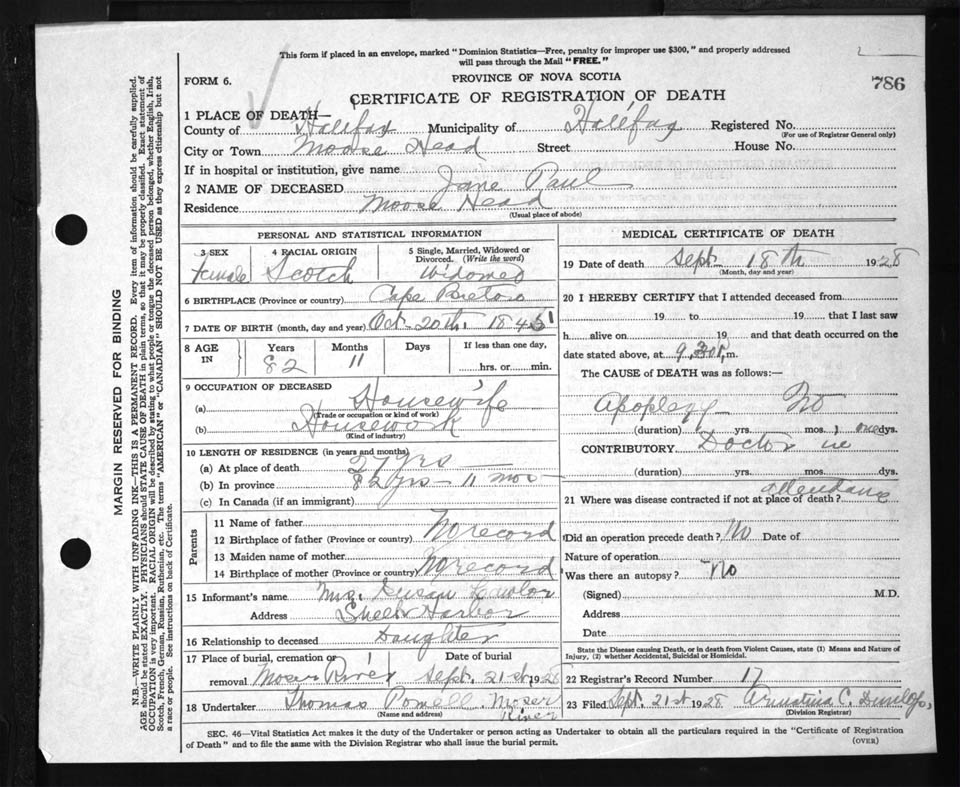 This form if placed in an envelope, marked "Dominion Statistics—Free, penalty for improper use $300," and properly addressed
will pass through the Mail "FREE."
FORM 6.
PROVINCE OF NOVA SCOTIA
786
CERTIFICATE OF REGISTRATION OF DEATH
1 PLACE OF DEATH—
County of Halifax Municipality of Halifax Registered No.
(For use of Registrar General only)
City or Town Moose Head Street House No.
If in hospital or institution, give name
2 NAME OF DECEASED Jane Paul
Residence Moose Head
(Usual place of abode)
PERSONAL AND STATISTICAL INFORMATION
3 SEX 4 RACIAL ORIGIN 5 Single, Married, Widowed or
Divorced. (Write the word)
Female Scotch Widowed
6 BIRTHPLACE (Province or country) Cape Breton
7 DATE OF BIRTH (month, day and year) Oct. 20th. 1845
8 AGE IN Years Months Days If less than one day,
82 11 hrs. or min.
9 OCCUPATION OF DECEASED
(a) Housewife
(Trade or occupation or kind of work)
(b) Housework
(Kind of industry)
10 LENGTH OF RESIDENCE (in years and months)
(a) At place of death 27 yrs —
(b) In province 82 yrs — 11 mos
(c) In Canada (if an immigrant)
Parents
11 Name of father
12 Birthplace of father (Province or country) No record
13 Maiden name of mother
14 Birthplace of mother (Province or country) No record
15 Informant's name Mrs. Susan Lawlor
Address Sheet Harbor
16 Relationship to deceased Daughter
17 Place of burial, cremation or Date of burial
removal Moser River Sept. 21st 1928
18 Undertaker Thomas Powell Moser
River
(Name and address)
MEDICAL CERTIFICATE OF DEATH
19 Date of death Sept 18th 1928
(Month, day and year)
20 I HEREBY CERTIFY that I attended deceased from
19 to 19 that I last saw
h alive on 19 and that death occurred on the
date stated above, at 9.30 p.m.
The CAUSE of DEATH was as follows:—
Apoplexy — No
(duration) yrs. mos. one dys.
CONTRIBUTORY Doctor in
(duration) yrs. mos. dys.
attendance
21 Where was disease contracted if not at place of death?
Did an operation precede death? No Date of
Nature of operation
Was there an autopsy? No
(Signed) M.D.
Address
Date
State the Disease causing Death, or in death from Violent Causes, state (1) Means and Nature of
Injury, (2) whether Accidental, Suicidal or Homicidal.
22 Registrar's Record Number 17
23 Filed Sept. 21st 1928 C. Dunlop,
(Division Registrar)
SEC. 46—Vital Statistics Act makes it the duty of the Undertaker or person acting as Undertaker to obtain all the particulars required in the "Certificate of Registration
of Death" and to file the same with the Division Registrar who shall issue the burial permit.
(OVER)
MARGIN RESERVED FOR BINDING
N.B.—WRITE PLAINLY WITH UNFADING INK—THIS IS A PERMANENT RECORD. Every item of information should be carefully supplied.
AGE should be stated EXACTLY. PHYSICIANS should STATE CAUSE OF DEATH in plain terms, so that it may be properly classified. Exact statement of
OCCUPATION is very important. RACIAL ORIGIN will be described by stating to what people or tongue the deceased person belonged, whether English, Irish,
Scotch, French, German, Russian, Ruthenian, etc. The terms "AMERICAN" or "CANADIAN" SHOULD NOT BE USED as they express citizenship but not
a race or people. See instructions on back of Certificate.